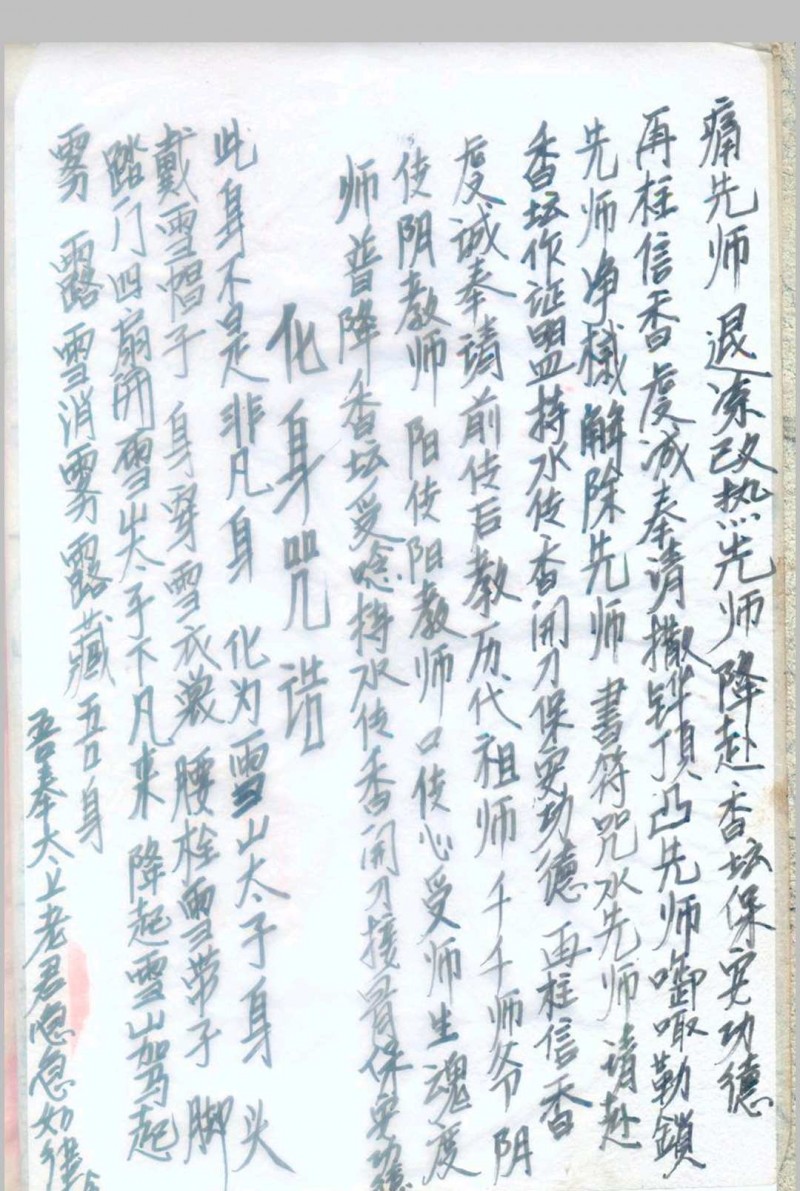 痛先师 退凉改热先师 降赴香坛保安功德
再柱信香虔诚奉请撒铧顶凸先师 啣嘅勒鎖
先师净械解除先师 書符咒水先师 请赴
香坛作证盟持水传香開刀保安功德 再柱信香
虔诚奉请前传后教历代祖师 千千师爷 阴
传阴教师 阳传阳教师 口传心受师 生魂度
师普降香坛受唸持水传香開刀接骨保安功德
化身咒语
此身不是非凡身 化为雪山太子身 头
戴雪帽子 身穿雪衣裳 腰栓雪带子 脚
踏门四扇開雪山太子下凡来 降起雪山加马起
雾露雪消雾露藏吾身
吾奉太上老君急急如律